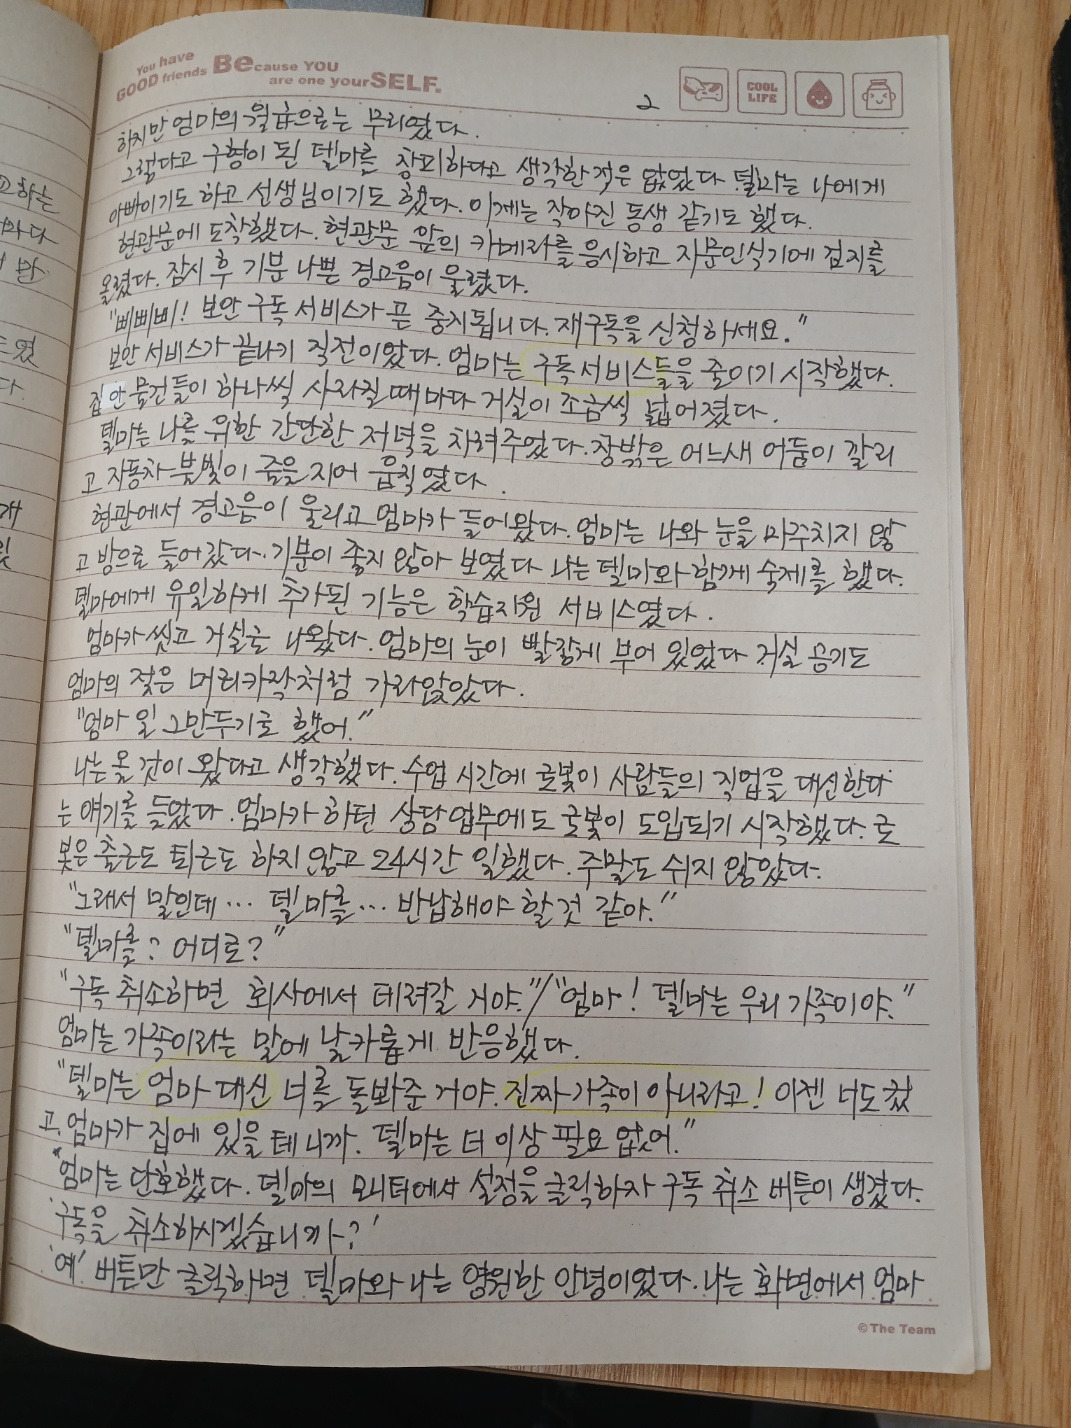 You have
GOOD friends Because YOU
are one yourSELF.
COOL
LIFE
2
하지만 엄마의 월급으로는 무리였다.
그렇다고 구형이 된 텔마를 창피하다고 생각한 적은 없었다. 텔마는 나에게
아빠이기도 하고 선생님이기도 했다. 이제는 작아진 동생 같기도 했다.
현관문에 도착했다. 현관문 앞의 카메라를 응시하고 지문인식기에 검지를
올렸다. 잠시 후 기분 나쁜 경고음이 울렸다.
"삐삐삐! 보안 구독 서비스가 곧 중지됩니다. 재구독을 신청하세요."
보안 서비스가 끝나기 직전이었다. 엄마는 구독 서비스들을 줄이기 시작했다.
집 안 물건들이 하나씩 사라질 때마다 거실이 조금씩 넓어졌다.
텔마는 나를 위한 간단한 저녁을 차려주었다. 창밖은 어느새 어둠이 깔리
고 자동차 불빛이 줄을 지어 움직였다.
현관에서 경고음이 울리고 엄마가 들어왔다. 엄마는 나와 눈을 마주치지 않
고 방으로 들어갔다. 기분이 좋지 않아 보였다. 나는 텔마와 함께 숙제를 했다.
텔마에게 유일하게 추가된 기능은 학습지원 서비스였다.
엄마가 씻고 거실로 나왔다. 엄마의 눈이 빨갛게 부어 있었다 거실 공기도
엄마의 젖은 머리카락처럼 가라앉았다.
"엄마 일 그만두기로 했어."
나는 올 것이 왔다고 생각했다. 수업 시간에 로봇이 사람들의 직업을 대신한다
는 얘기를 들었다. 엄마가 하던 상담 업무에도 로봇이 도입되기 시작했다. 로
봇은 출근도 퇴근도 하지 않고 24시간 일했다. 주말도 쉬지 않았다.
"그래서 말인데… 텔마를… 반납해야 할 것 같아."
"텔마를? 어디로?"
"구독 취소하면 회사에서 데려갈 거야."/"엄마! 텔마는 우리 가족이야."
엄마는 가족이라는 말에 날카롭게 반응했다.
"텔마는 엄마 대신 너를 돌봐준 거야. 진짜 가족이 아니라고! 이젠 너도 컸
고, 엄마가 집에 있을 테니까. 텔마는 더 이상 필요 없어."
엄마는 단호했다. 텔마의 모니터에서 설정을 클릭하자 구독 취소 버튼이 생겼다.
'구독을 취소하시겠습니까?'
'예' 버튼만 클릭하면 텔마와 나는 영원한 안녕이었다. 나는 화면에서 엄마
©The Team